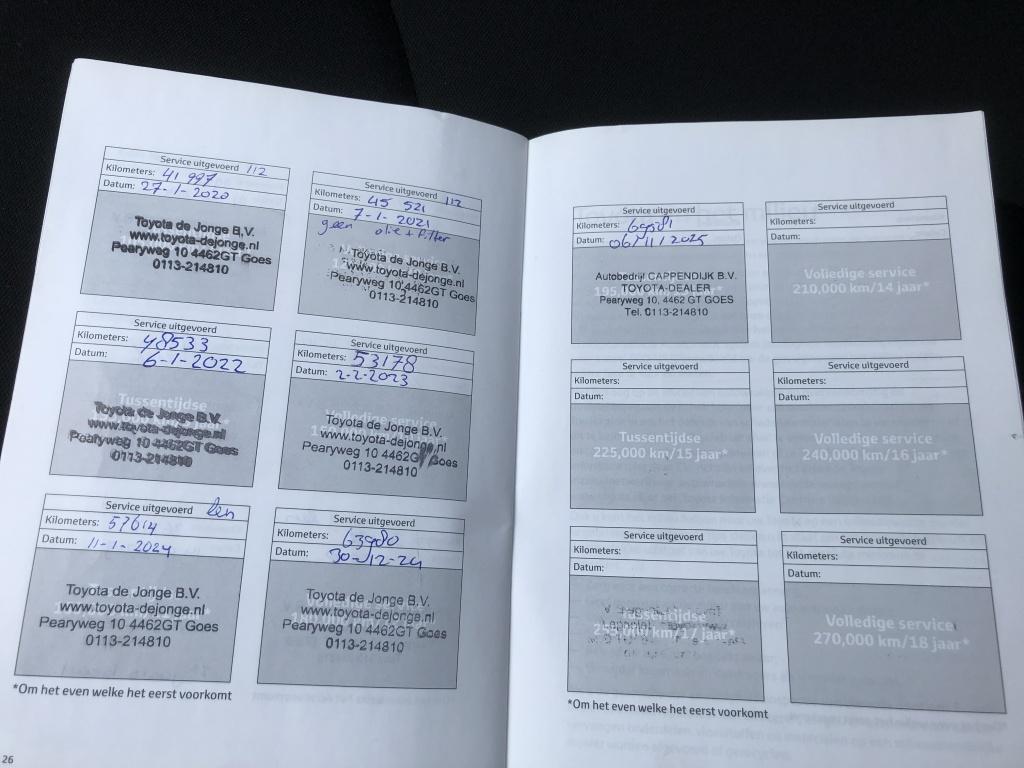 Service uitgevoerd 112
Kilometers: 41 997
Datum: 27-1-2020
Toyota de Jonge B.V.
www.toyota-dejonge.nl
Pearyweg 10 4462GT Goes
0113-214810
Service uitgevoerd 112
Kilometers: 45 521
Datum: 7-1-2021
geen olie + filter
Toyota de Jonge B.V.
www.toyota-dejonge.nl
Pearyweg 10 4462GT Goes
0113-214810
Service uitgevoerd
Kilometers: 48533
Datum: 6-1-2022
Tussentijdse
Toyota de Jonge B.V.
www.toyota-dejonge.nl
Pearyweg 10 4462GT Goes
0113-214810
Service uitgevoerd
Kilometers: 53178
Datum: 2-2-2023
Volledige service
Toyota de Jonge B.V.
www.toyota-dejonge.nl
Pearyweg 10 4462GT Goes
0113-214810
Service uitgevoerd
Kilometers: 57614
Datum: 11-1-2024
Toyota de Jonge B.V.
www.toyota-dejonge.nl
Pearyweg 10 4462GT Goes
0113-214810
Service uitgevoerd
Kilometers: 63980
Datum: 30-12-24
Toyota de Jonge B.V.
www.toyota-dejonge.nl
Pearyweg 10 4462GT Goes
0113-214810
*Om het even welke het eerst voorkomt
26
Service uitgevoerd
Kilometers:
Datum: 06/11/2025
Autobedrijf CAPPENDIJK B.V.
TOYOTA-DEALER
Pearyweg 10, 4462 GT GOES
Tel. 0113-214810
Service uitgevoerd
Kilometers:
Datum:
Volledige service
210,000 km/14 jaar*
Service uitgevoerd
Kilometers:
Datum:
Tussentijdse
225,000 km/15 jaar*
Service uitgevoerd
Kilometers:
Datum:
Volledige service
240,000 km/16 jaar*
Service uitgevoerd
Kilometers:
Datum:
Tussentijdse
255,000 km/17 jaar*
Service uitgevoerd
Kilometers:
Datum:
Volledige service
270,000 km/18 jaar*
*Om het even welke het eerst voorkomt